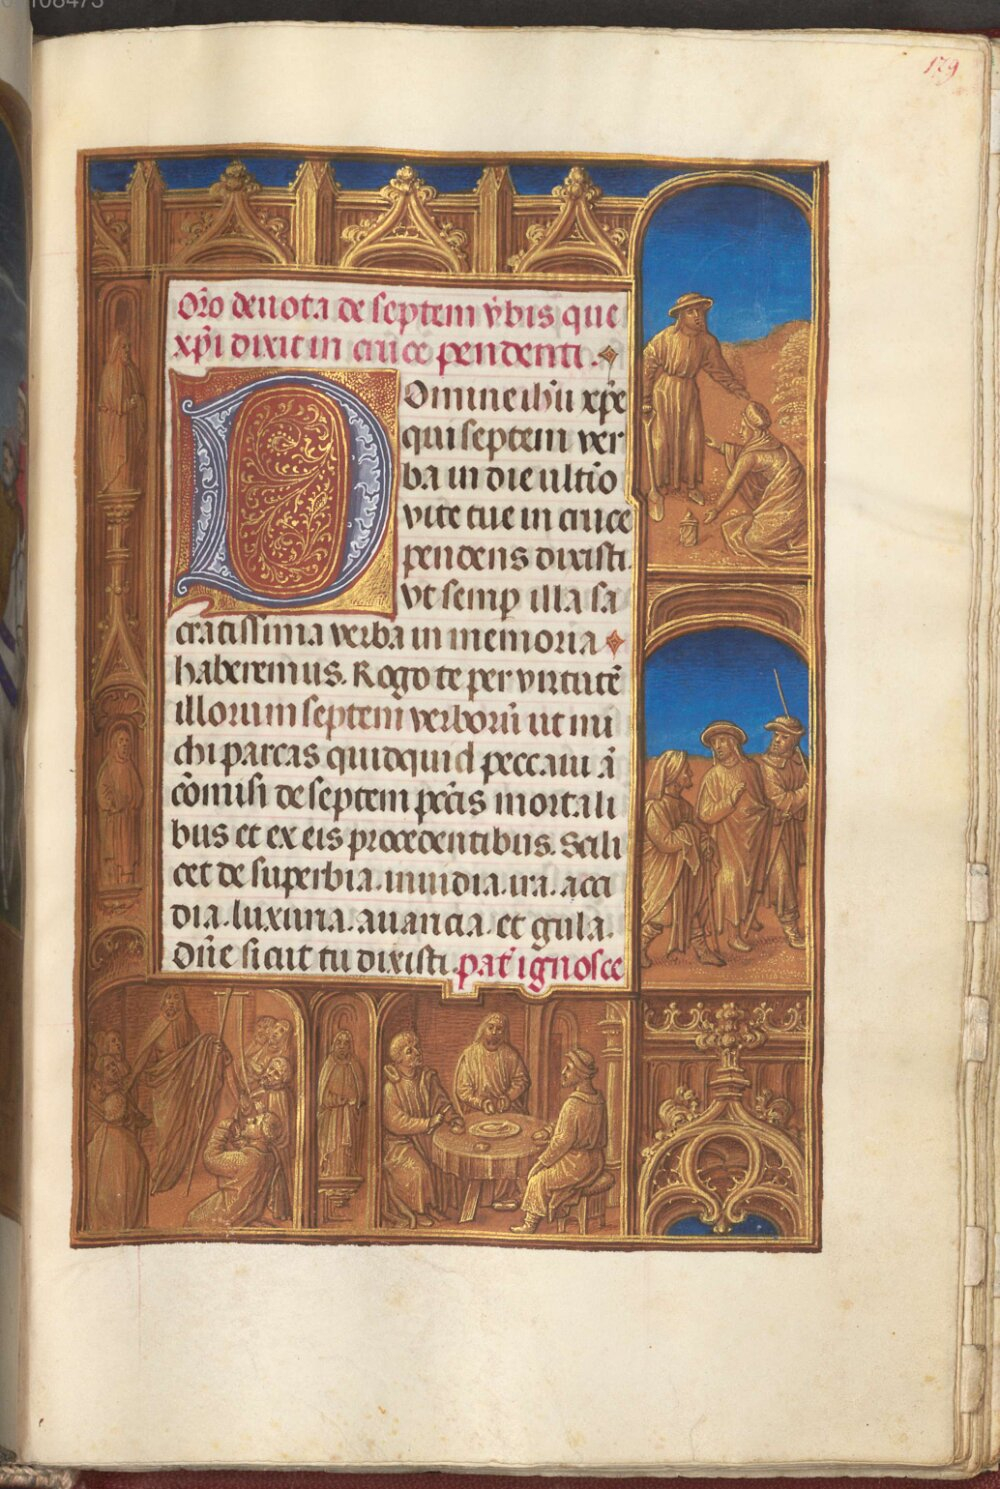 179
Oro̅ deuota de septem v̉bis que
xp̅i dixit in cruce pendenti.
Domine ihu̅ xp̅e
qui septem ver
ba in die ultio̅
vite tue in cruce
pendens dixisti.
vt semp̲ illa sa
cratissima verba in memoria
haberemus. Rogo te per virtute̅
illorum septem verboru̅ ut mi
chi parcas quidquid peccaui a̅
co̅misi de septem pc̅c̅is mortali
bus et ex eis procedentibus. Scili
cet de superbia. inuidia. ira. acci
dia. luxuria. auaricia. et gula.
Dn̅e sicut tu dixisti. pat̅ ignosce